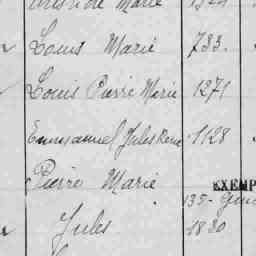 Marie 1324
Louis Marie 733.
Louis Pierre Marie 1271
Emmanuel Jules René 1128
Pierre Marie EXEMP
135
Jules 1830